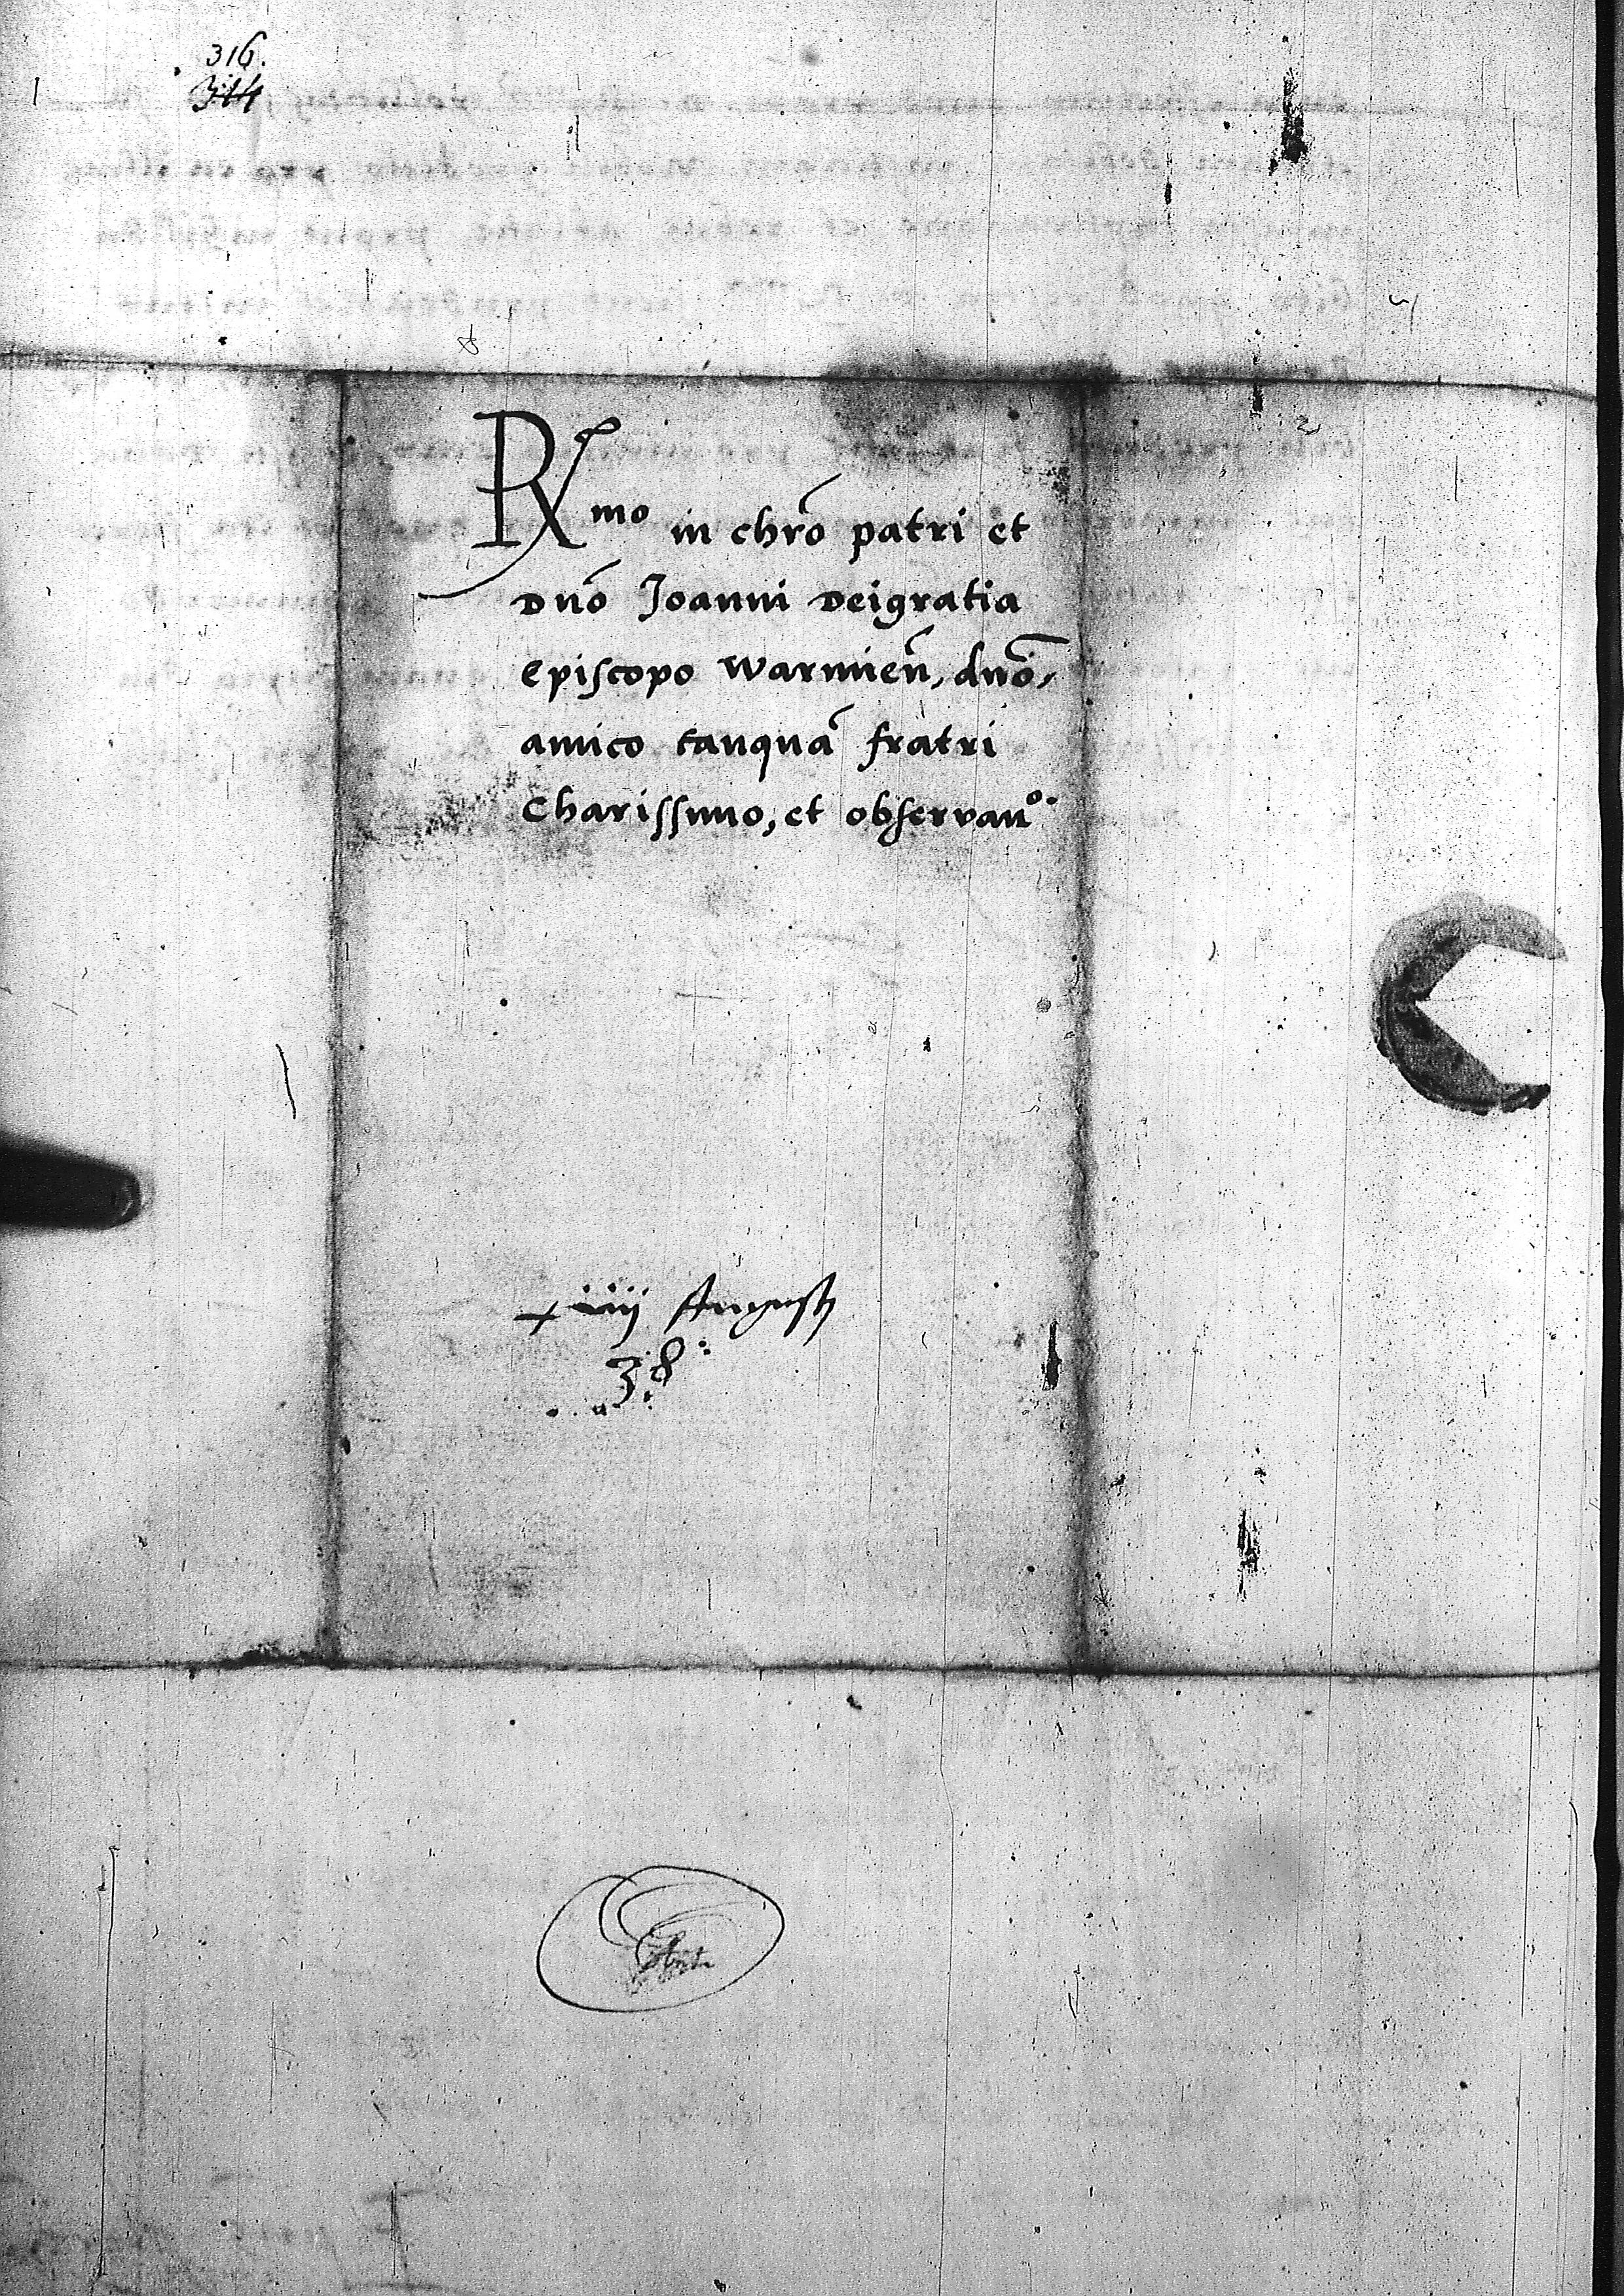 316.
314
Rmo in chrō patri et
Dnō Joanni Deigratia
Episcopo Warmien̄, dnō,
amico tanquā fratri
Charissimo, et observan̄o.
xiiij Augusti
38